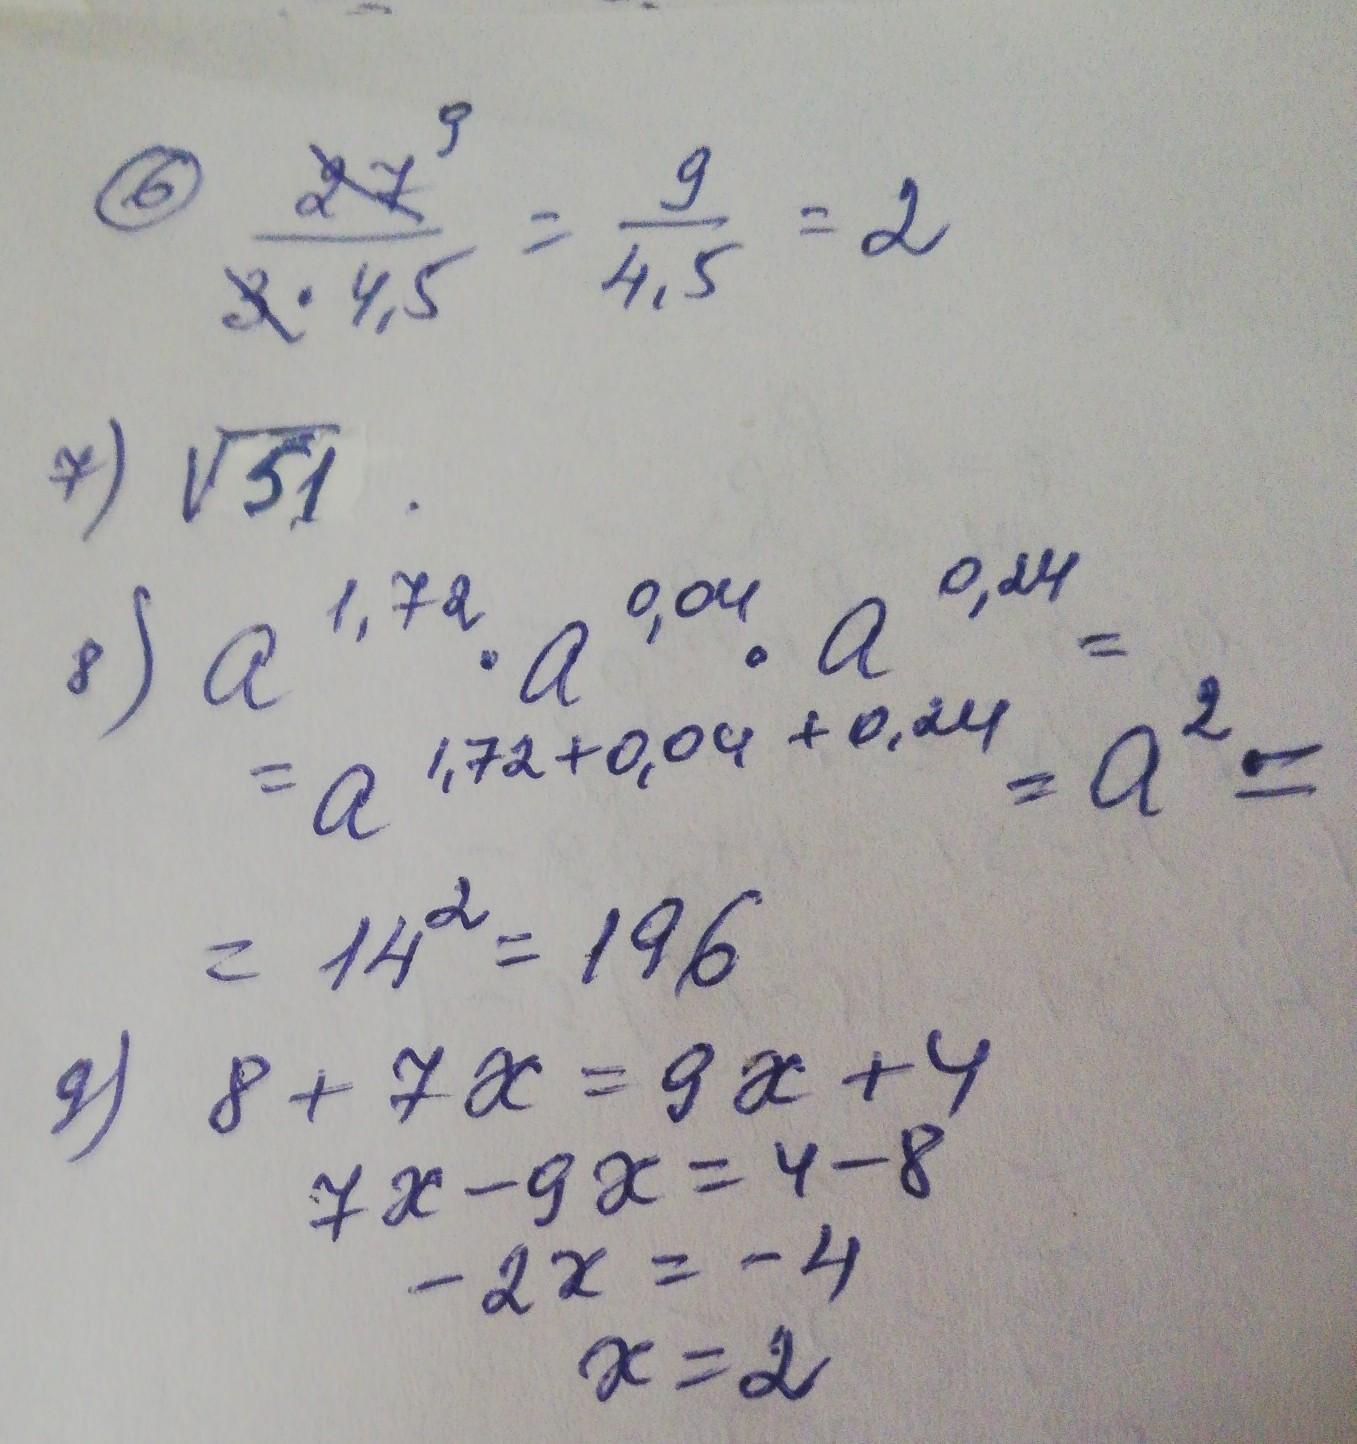 ⑥ 27⁹/3·4,5 = 9/4,5 = 2
7) √51 .
8) a^1,72 · a^0,04 · a^0,24 =
= a^1,72+0,04+0,24 = a² =
= 14² = 196
9) 8 + 7x = 9x + 4
7x - 9x = 4 - 8
- 2x = - 4
x = 2